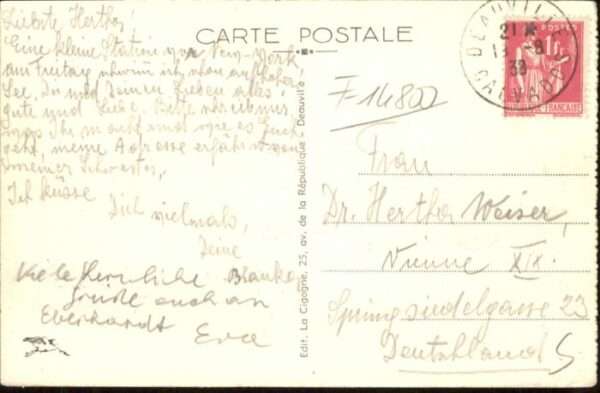 CARTE POSTALE
Liebste Hertha!
Eine kleine Station vor New-York,
am Freitag schwimm ich schon auf hoher
See. Dir und Deinen Lieben alles
gute und Liebe. Bitte schreib mir
was Ihr macht und wie es Euch
geht, meine Adresse erfährst von
meiner Schwester,
Ich küsse
Dich vielmals,
Deine
Blanka
Viele herzliche
Grüße auch an
Eberhardt Eva
Edit. La Cigogne, 25, av. de la République, Deauville
DEAUVILLE
21
13 -8
38
CALVADOS
POSTES
1F
RÉPUBLIQUE FRANÇAISE
F 14802
Frau
Dr. Hertha Weiser,
Vienne XIX.
Springsiedelgasse 23
Deutschland